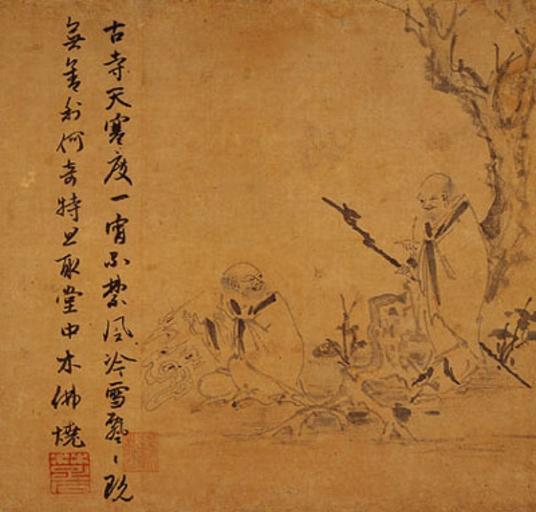 古寺天寒度一宵不禁風冷雪飄〻既
無舎利何奇特且取堂中木佛燒